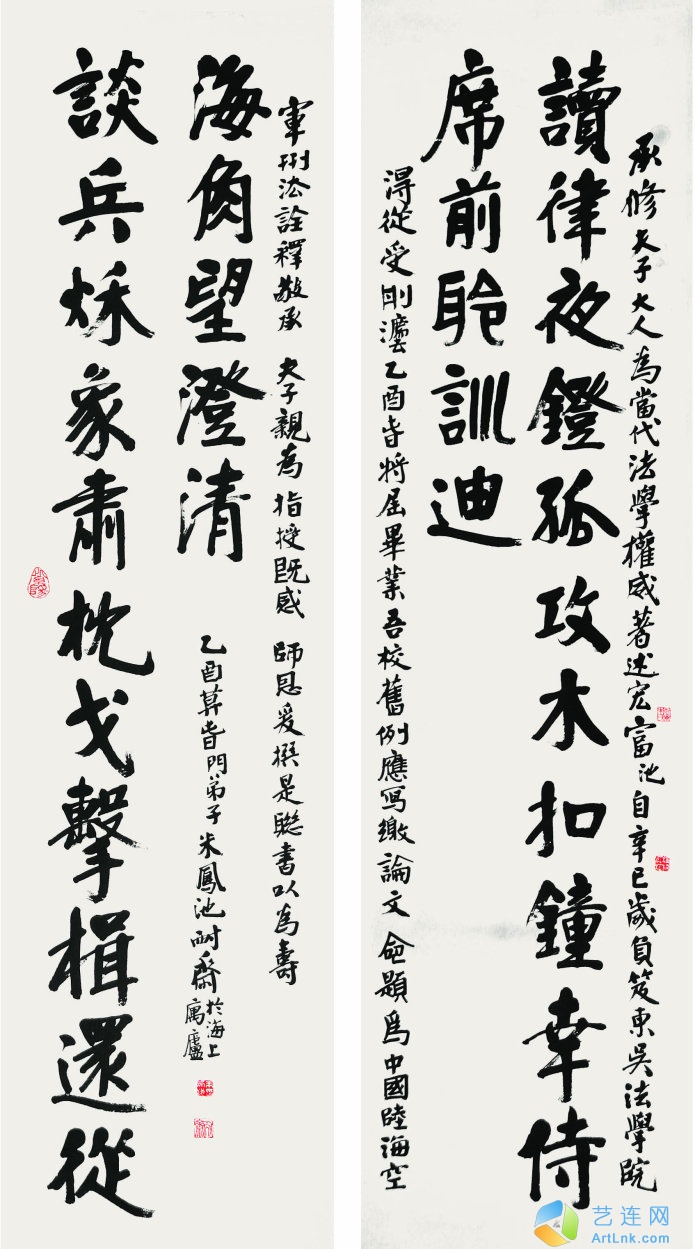 承修夫子大人為當代法學權威著述宏富池自辛巳歲負笈東吳法學院
讀律夜鐙孤攻木扣鐘幸侍
席前聆訓迪
得從受刑灋乙酉旹將屆畢業吾校舊例應寫繳論文命題為中國陸海空
軍刑法詮釋敬承 夫子親為指授既感 師恩爰撰是聯書以為壽
海角望澄清
談兵炑象肅枕戈擊楫還從
乙酉算旹門弟子米鳳池耐齋於海上
寓廬
艺连网
ArtLnk.com